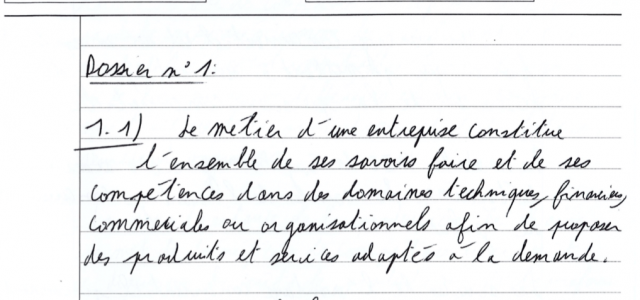 Dossier n°1:
1.1) Le métier d'une entreprise constitue
l'ensemble de ses savoirs faire et de ses
compétences dans des domaines techniques, financiers,
commerciales ou organisationnels afin de proposer
des produits et services adaptés à la demande.